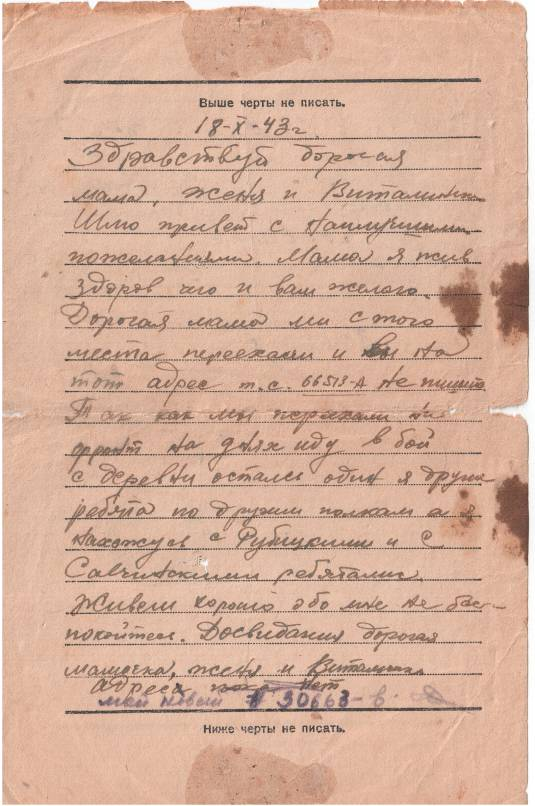 Выше черты не писать.
18-X-43 г.
Здравствуй дорогая
мама, женя и Виталинька
Шлю привет с наилучшими
пожеланиями. Мама я жив
здоров чего и вам желаю.
Дорогая мама ми с того
места переехали и вы на
тот адрес т.с. 66513-А не пишите
Так как мы переехали на
фронт на днях иду в бой
с деревни остались один я други
ребята по другим полкам а я
нахожусь с Рубицкими и с
Савчинскими ребятами.
Живем хорошо обо мне не бес-
покойтесь. Досвидания дорогая
мамочка, женя и Виталинька
адреса нет
мой новый № 30663-в.
Ниже черты не писать.